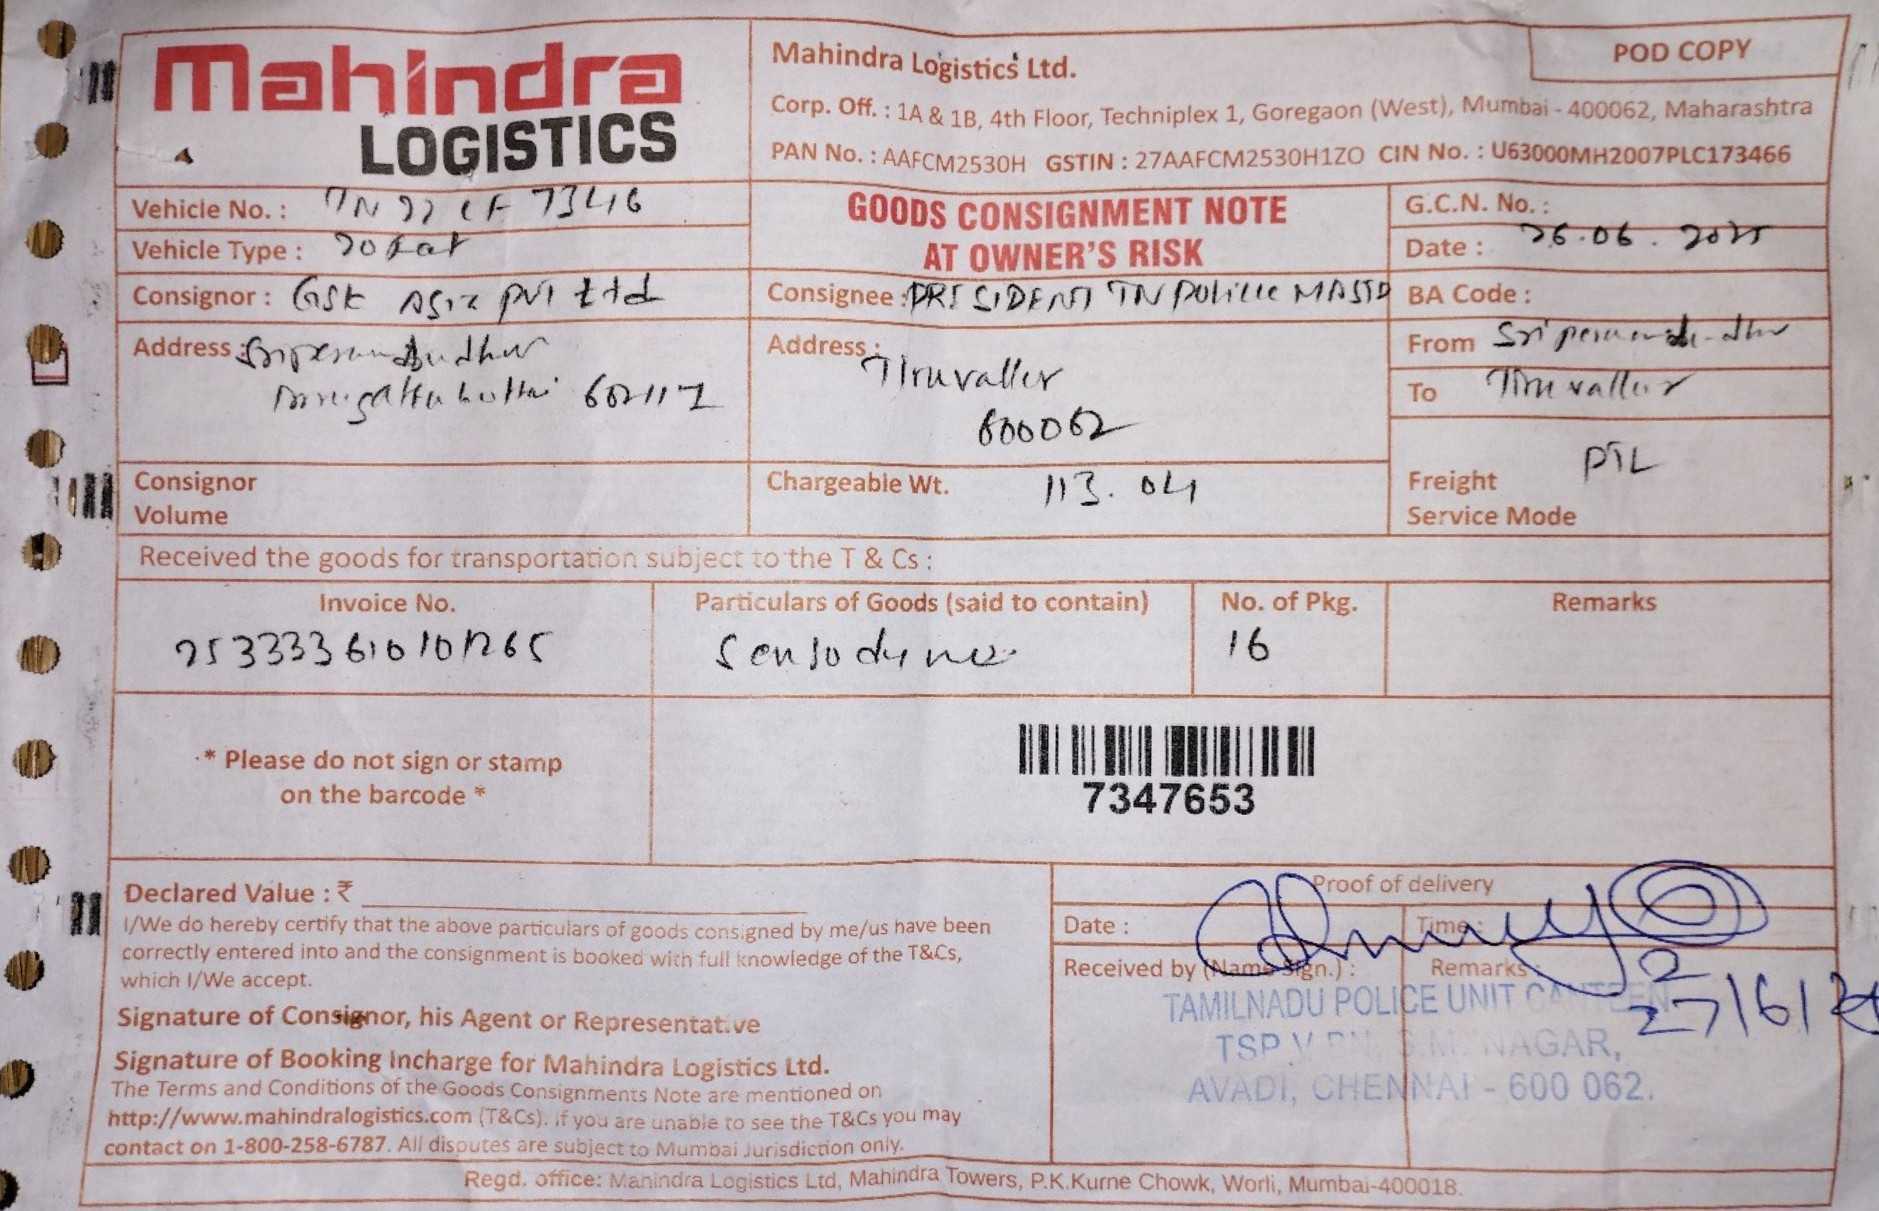 Mahindra
LOGISTICS
Mahindra Logistics Ltd.
POD COPY
Corp. Off. : 1A & 1B, 4th Floor, Techniplex 1, Goregaon (West), Mumbai - 400062, Maharashtra
PAN No. : AAFCM2530H GSTIN : 27AAFCM2530H1ZO CIN No. : U63000MH2007PLC173466
Vehicle No. :
Vehicle Type :
GOODS CONSIGNMENT NOTE
AT OWNER'S RISK
G.C.N. No. :
Date : 26.06.2025
Consignor : GSK Asia PVT Ltd
Consignee : PRESIDENT TN Police
BA Code :
Address :
Address : Tiruvallur
600062
From
To Tiruvallur
Consignor
Volume
Chargeable Wt. 113.04
Freight PTL
Service Mode
Received the goods for transportation subject to the T & Cs :
Invoice No.
Particulars of Goods (said to contain)
No. of Pkg.
Remarks
Sensodyne
16
* Please do not sign or stamp
on the barcode *
7347653
Declared Value : ₹
I/We do hereby certify that the above particulars of goods consigned by me/us have been
correctly entered into and the consignment is booked with full knowledge of the T&Cs,
which I/We accept.
Signature of Consignor, his Agent or Representative
Signature of Booking Incharge for Mahindra Logistics Ltd.
The Terms and Conditions of the Goods Consignments Note are mentioned on
http://www.mahindralogistics.com (T&Cs). If you are unable to see the T&Cs you may
contact on 1-800-258-6787. All disputes are subject to Mumbai Jurisdiction only.
Proof of delivery
Date :
Time :
Received by (Name Sign.) :
Remarks
TAMILNADU POLICE UNIT CANTEEN
TSP NAGAR,
AVADI, CHENNAI - 600 062.
Regd. office: Mahindra Logistics Ltd, Mahindra Towers, P.K.Kurne Chowk, Worli, Mumbai-400018.